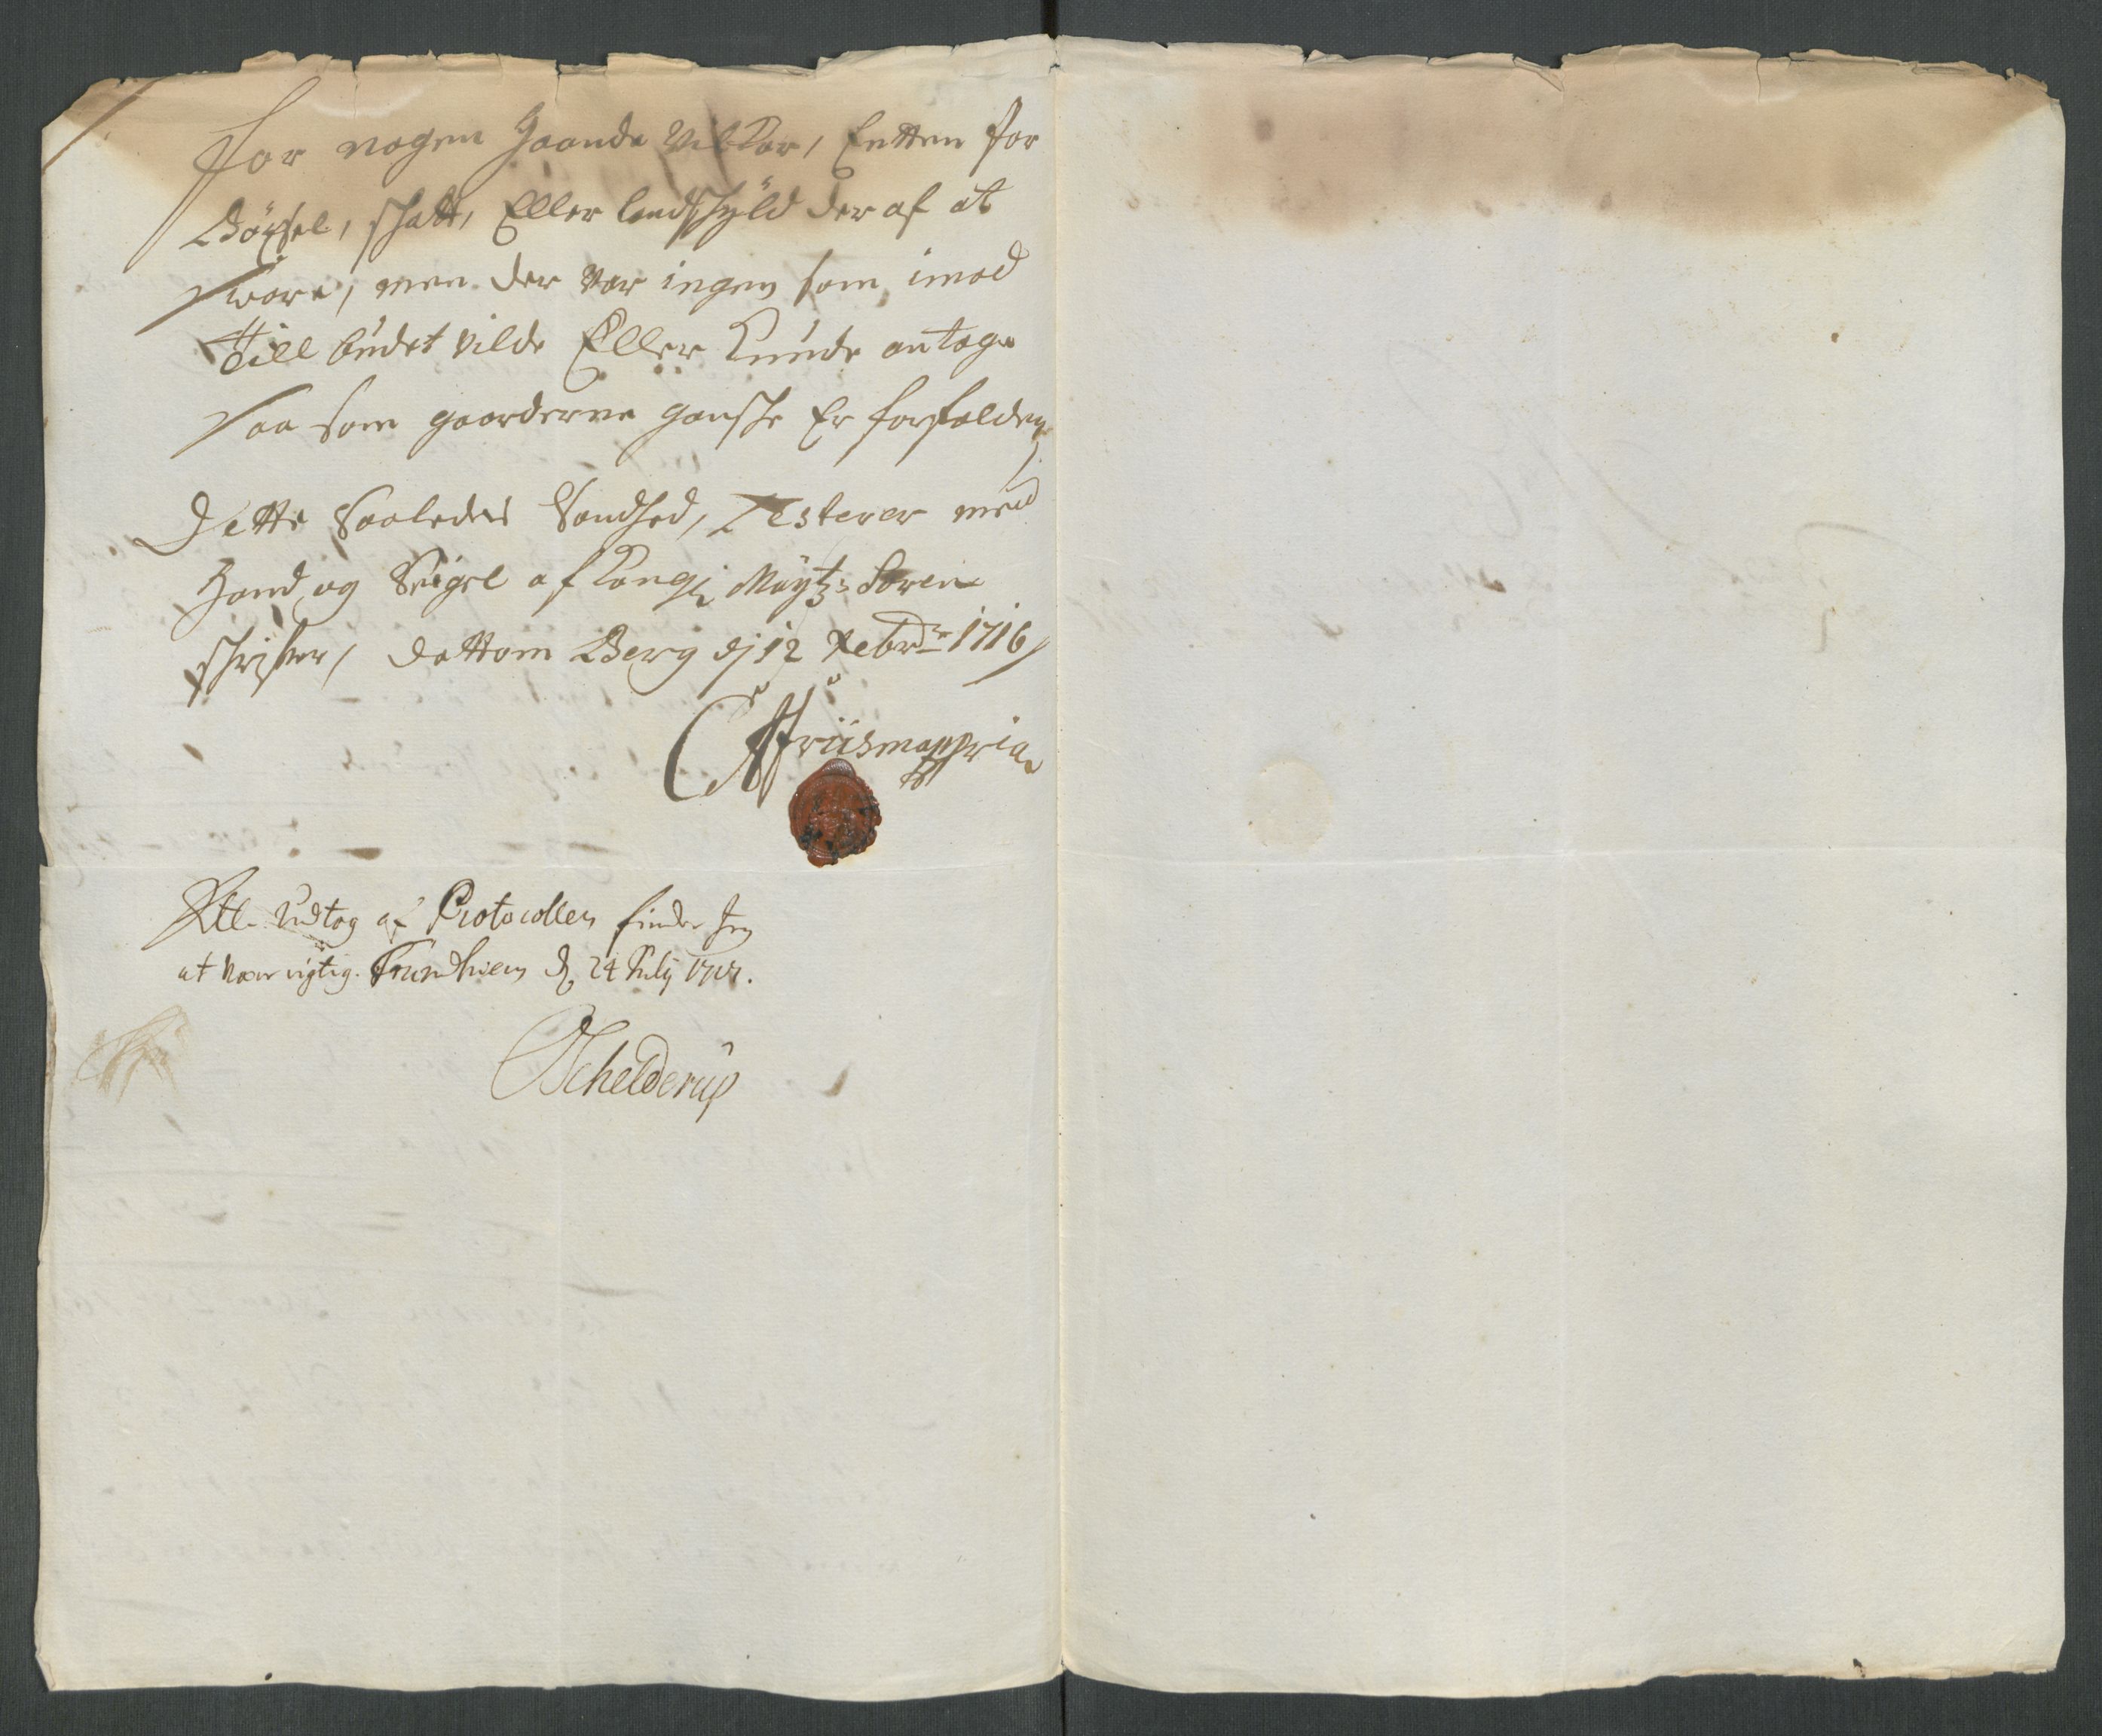 for nogen haande Vilkor, Enten for
Böxsel, schatt, Eller landschyld der af at
svare, men der var ingen som imod
till budet vilde Eller Kunde antage
saa som gaarderne gansche Er forfalden,
Dette saaledes Sandhed, Testerer med
Haand og Seigel af Kongl Maytz: Soren
schrifver, dattom Berg dj 12 Febr: 1716
friis mappria
Udtog af Protocollen finder Jeg
at være rigtig. Trundhiem d 24 July 1717.
Schelderup